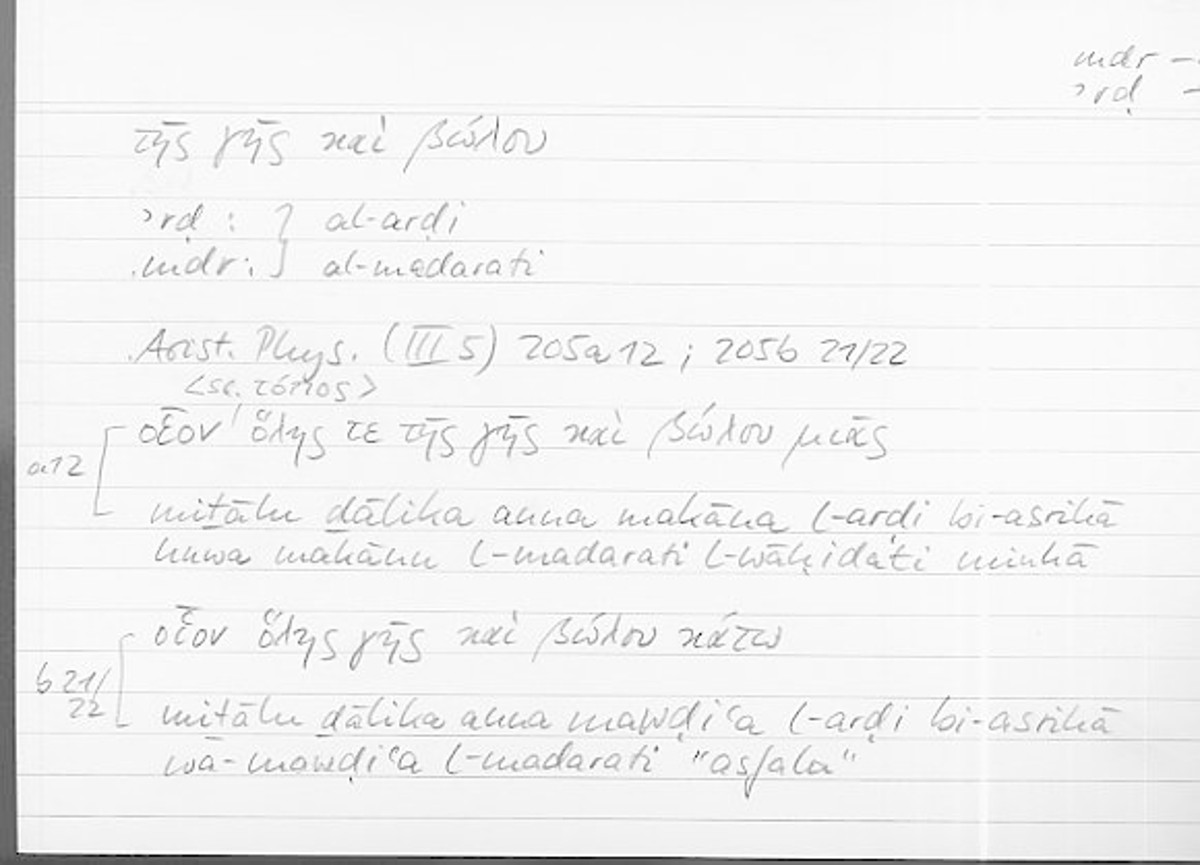 mdr –
ʾrḍ –
τῆς γῆς καὶ βώλου
ʾrḍ : } al-arḍi
mdr : } al-madarati
Arist. Phys. (III 5) 205a12 ; 205b 21/22
<sc. τόπος>
οἷον ὅλης τε τῆς γῆς καὶ βώλου μιᾶς
a12
miṯālu ḏālika anna makāna l-arḍi bi-asrihā
huwa makānu l-madarati l-wāḥidati minhā
οἷον ὅλης γῆς καὶ βώλου κάτω
b 21/
22
miṯālu ḏālika anna mawḍiʿa l-arḍi bi-asrihā
wa-mawḍiʿa l-madarati "asfala"